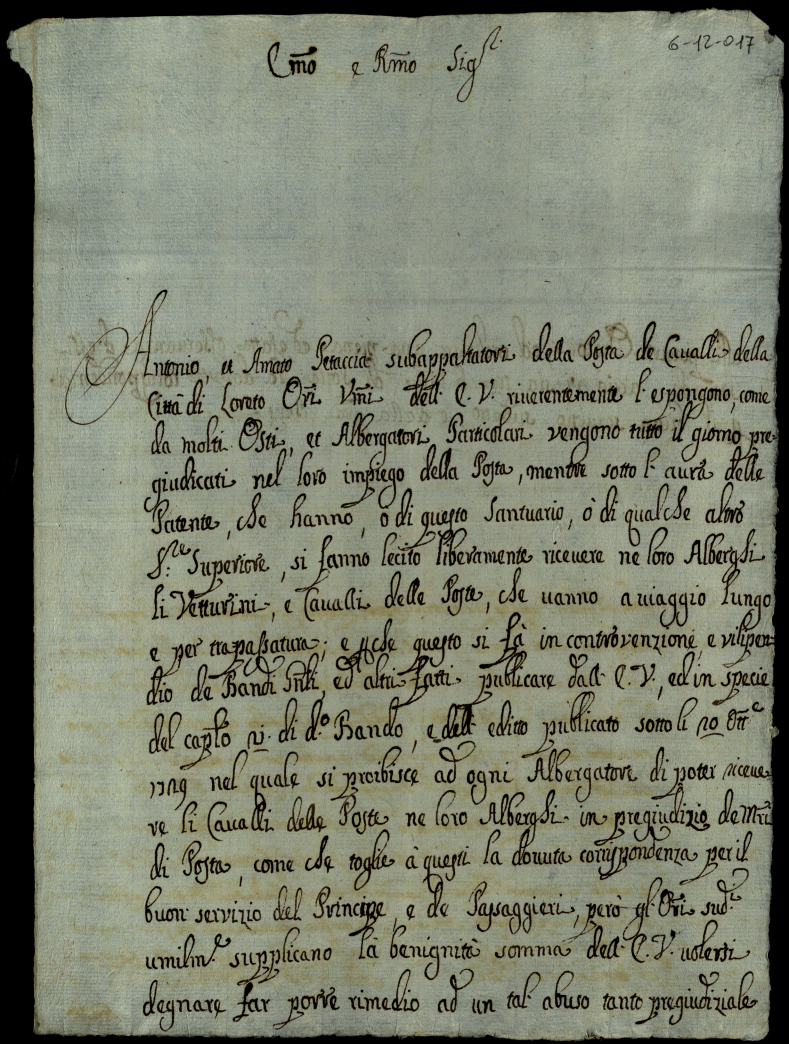 6-12-017
Emo e Rmo Sigr.
Antonio, et Amato Petaccia subappaltatori della Posta de Cavalli della
Città di Loreto Ori Umi dell' E. V. riverentemente l'espongono, come
da molti Osti, et Albergatori Particolari vengono tutto il giorno pre-
giudicati nel loro impiego della Posta, mentre sotto l'aura delle
Patente, che hanno, ò di questo Santuario, ò di qualche altro
Sr.e Superiore, si fanno lecito liberamente ricevere ne loro Alberghi
li Vetturini, e Cavalli delle Poste, che vanno a viaggio lungo
e per trapassatura; e pche questo si fà in controvenzione, e vilipen-
dio de Bandi Gnli, ed altri fatti publicare dall' E. V., ed in specie
del caplo VI. di d.o Bando, e dell' editto publicato sotto li 20 Ott.e
1729 nel quale si proibisce ad ogni Albergatore di poter riceve-
re li Cavalli delle Poste ne loro Alberghi in pregiudizio de Mri
di Posta, come che toglie à questi la dovuta corrispondenza per il
buon servizio del Principe, e de Passaggieri, però gl'Ori sud.i
umilm.e supplicano la benignità somma dell' E. V. volersi
degnare far porre rimedio ad un tal' abuso tanto pregiudiziale